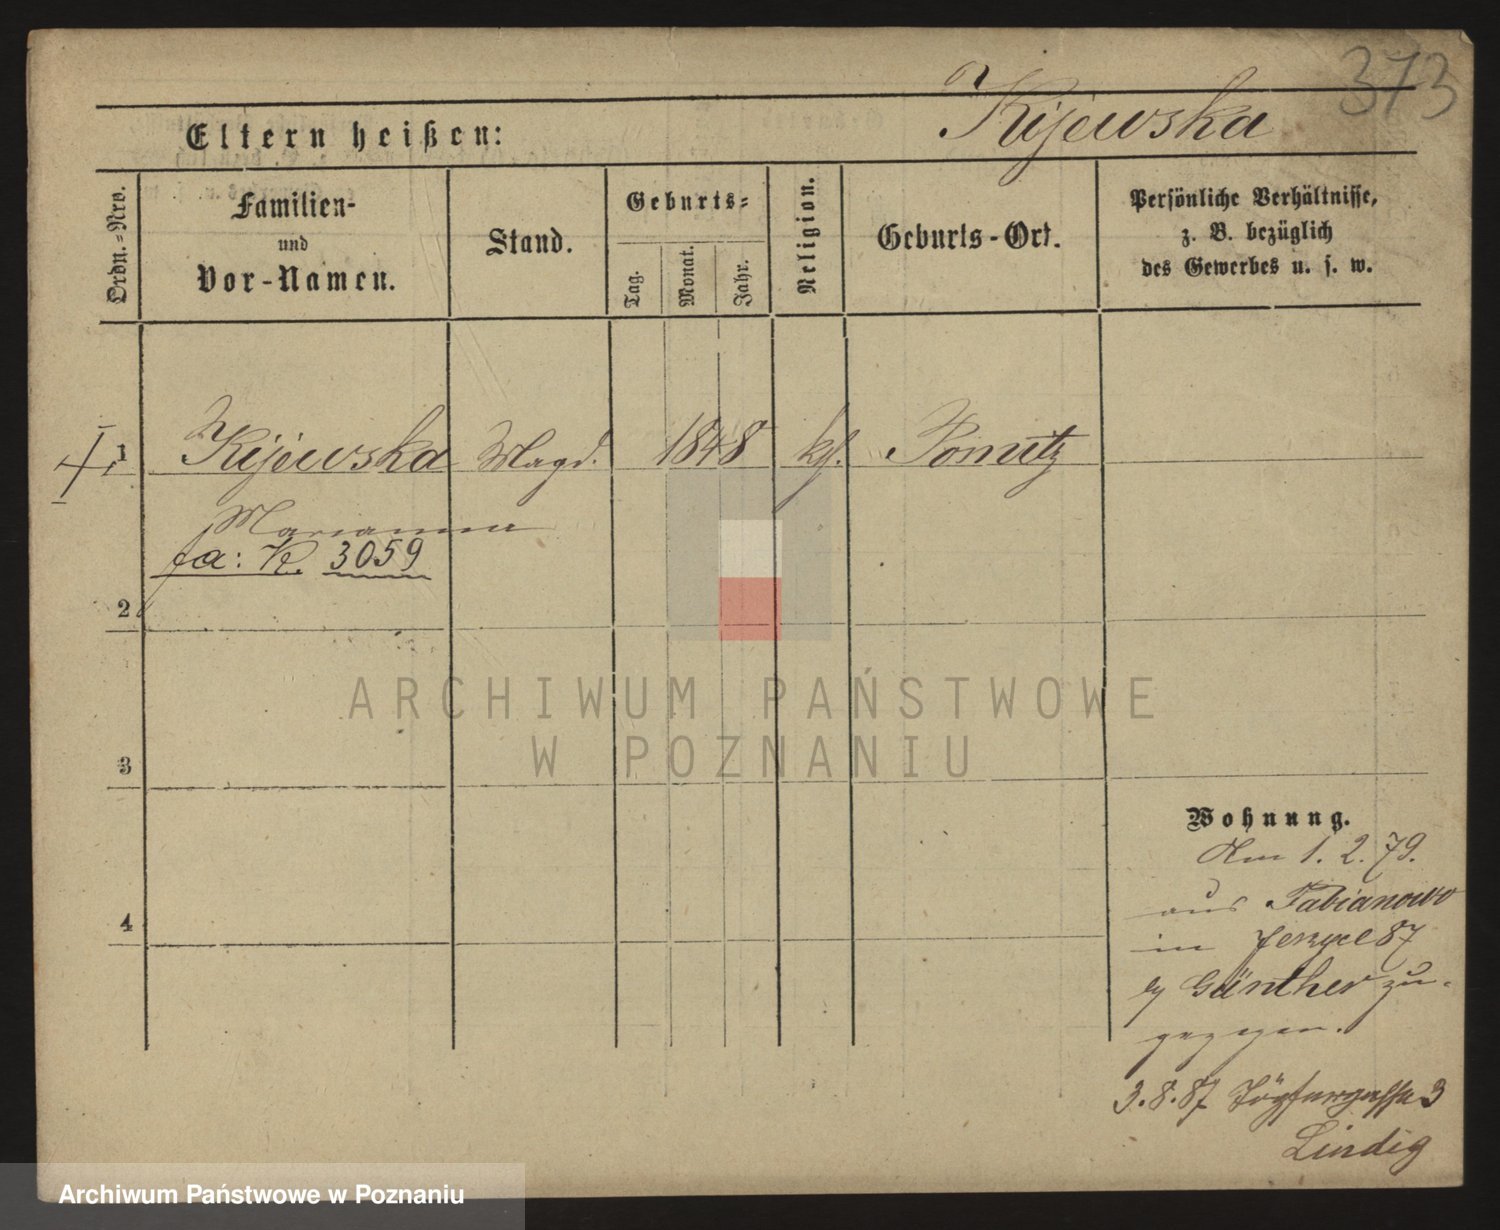 373
Kijewska
Eltern heißen:
Ordn.=Nro.
Familien-
und
Vor-Namen.
Stand.
Geburts=
Tag.
Monat.
Jahr.
Religion.
Geburts-Ort.
Persönliche Verhältnisse,
z. B. bezüglich
des Gewerbes u. s. w.
1 Kijewska Magd. 1848 kth. Ponitz
Marianna
fa: K. 3059
2
ARCHIWUM PAŃSTWOWE
W POZNANIU
3
Wohnung.
Am 1. 2. 79.
aus Fabianowo
in Jerzyce 87
by Günther zu-
gezogen.
4
3.8.87 Töpfergasse 3
Lindig
Archiwum Państwowe w Poznaniu